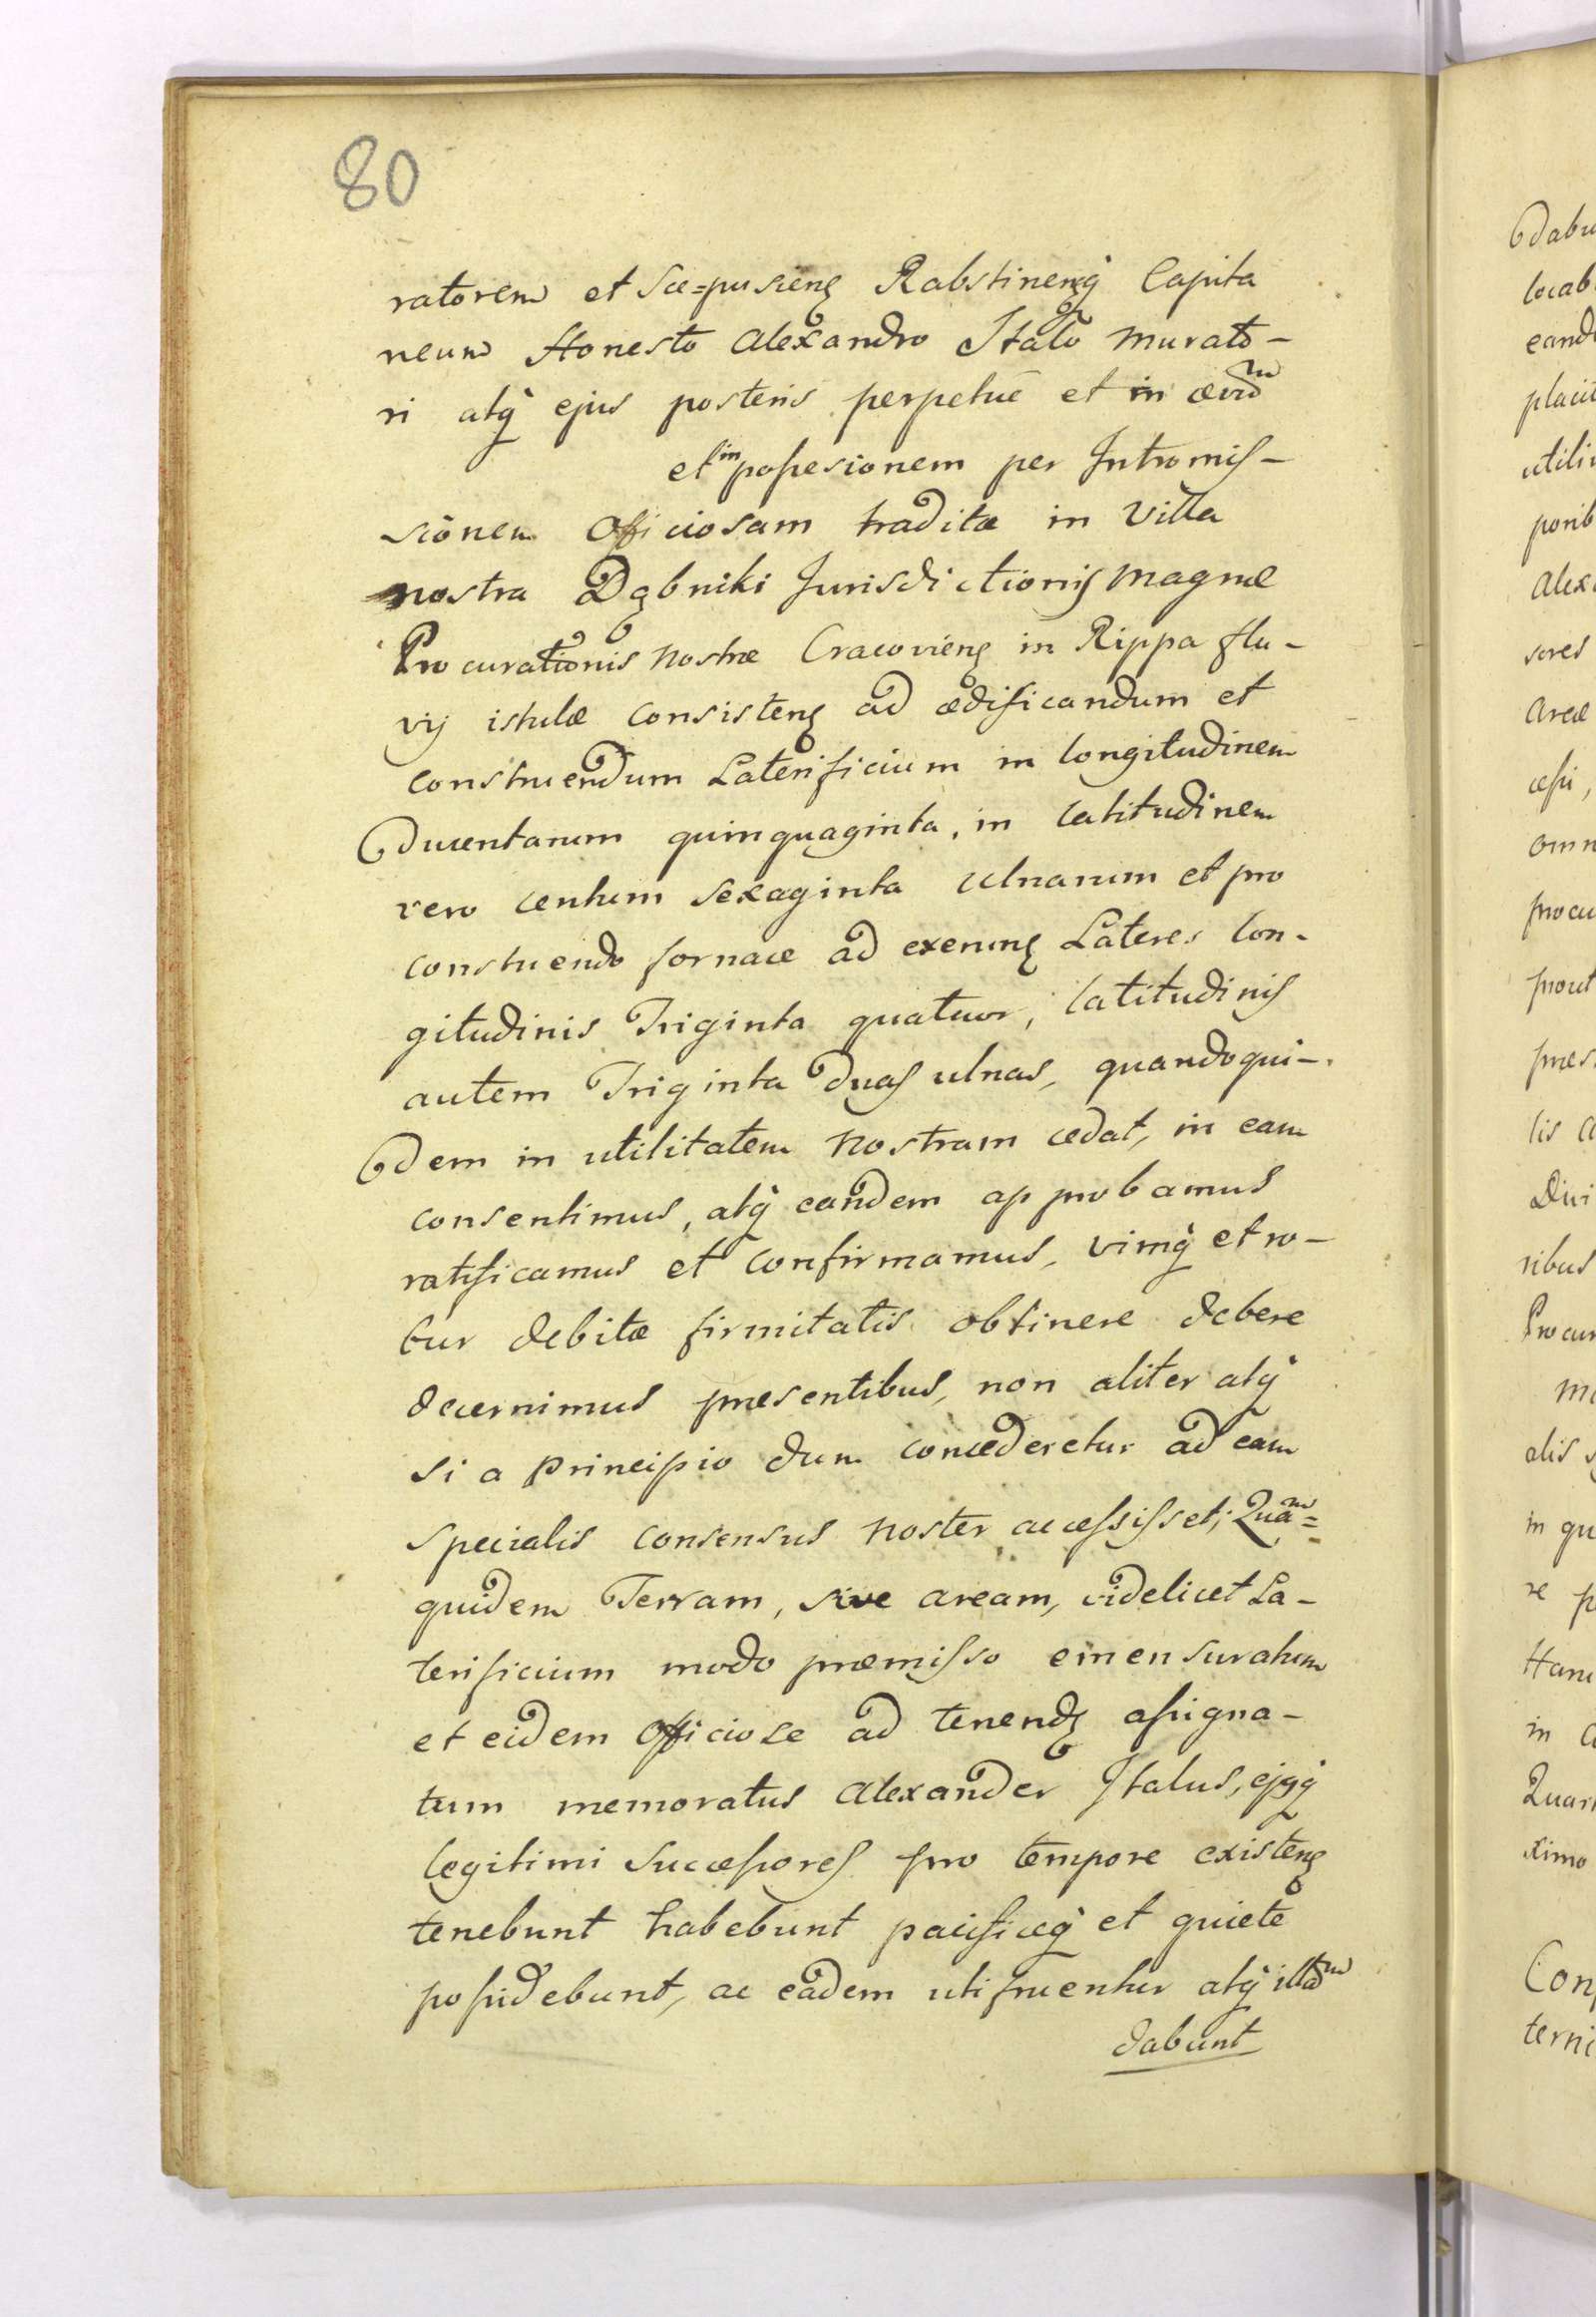 80
ratorem et Sce=pusieng Rabstinengq Capita
neum Honesto Alexandro Italo Murato-
ri atq ejus posteris perpetue et in ævum
et in possesionem per Intromis-
sionem Officiosam traditæ in Villa
nostra Dąbniki Jurisdictionis Magnæ
Procurationis Nostræ Cracovieng in Rippa flu-
vij istulæ consisteng ad ædificandum et
construendum Laterificium in longitudinem
Ducentarum quinquaginta, in latitudinem
vero centum sexaginta ulnarum et pro
construendo fornace ad exenung Lateres lon-
gitudinis Triginta quatuor, latitudinis
autem Triginta duas ulnas, quandoqui-
dem in utilitatem Nostram cedat, in eam
consentimus, atq eandem approbamus
ratificamus et confirmamus, vimq et ro-
bur debitæ firmitatis obtinere debere
decernimus præsentibus, non aliter atq
si a principio dum concederetur ad eam
specialis consensus noster accessisset; Quam=
quidem Terram, sive aream, videlicet La-
terificium modo præmisso emensuratum
et eidem Officiose ad tenendg assigna-
tum memoratus Alexander Italus, ejgq
legitimi Successores pro tempore existeng
tenebunt habebunt pacificeq et quiete
possidebunt, ac eadem utifruentur atq illam
dabunt
Dabu
locab
eand
placit
utili
porib
Alex
sores
Areæ
cessi,
omn
procu
prout
præs
lis c
Divi
ribus
Procur
alis
in qu
re p
Hanc
in c
Quar
ximo
Con
terni